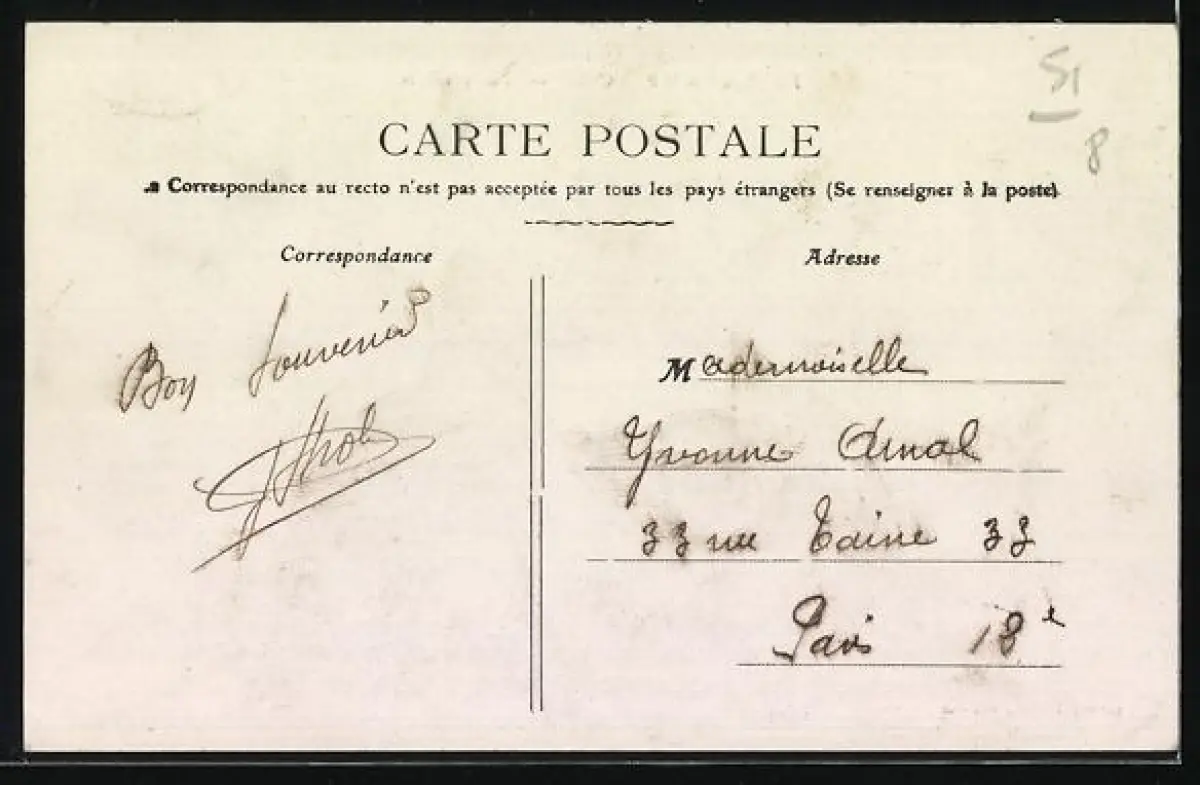 51
8
CARTE POSTALE
La Correspondance au recto n'est pas acceptée par tous les pays étrangers (Se renseigner à la poste)
Correspondance
Bon Souvenir
Adresse
Mademoiselle
Yvonne Arnal
33 rue Taine 33
Paris 18e